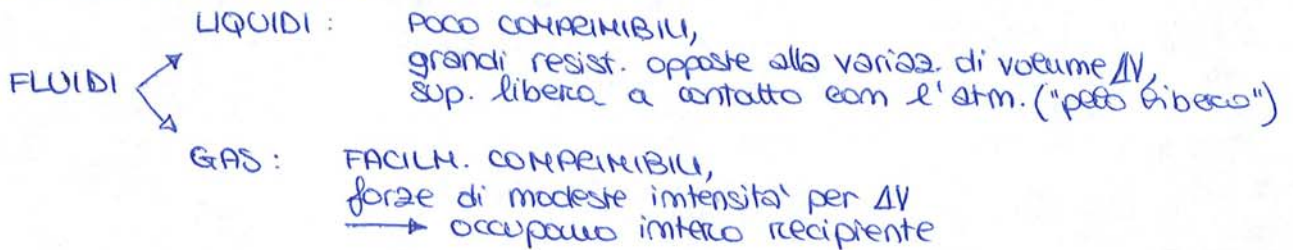 LIQUIDI : POCO COMPRIMIBILI,
grandi resist. opposte alla variaz. di volume ΔV,
FLUIDI
sup. libera a contatto con l'atm. ("pelo libero")
GAS : FACILM. COMPRIMIBILI,
forze di modeste intensità per ΔV
→ occupano intero recipiente